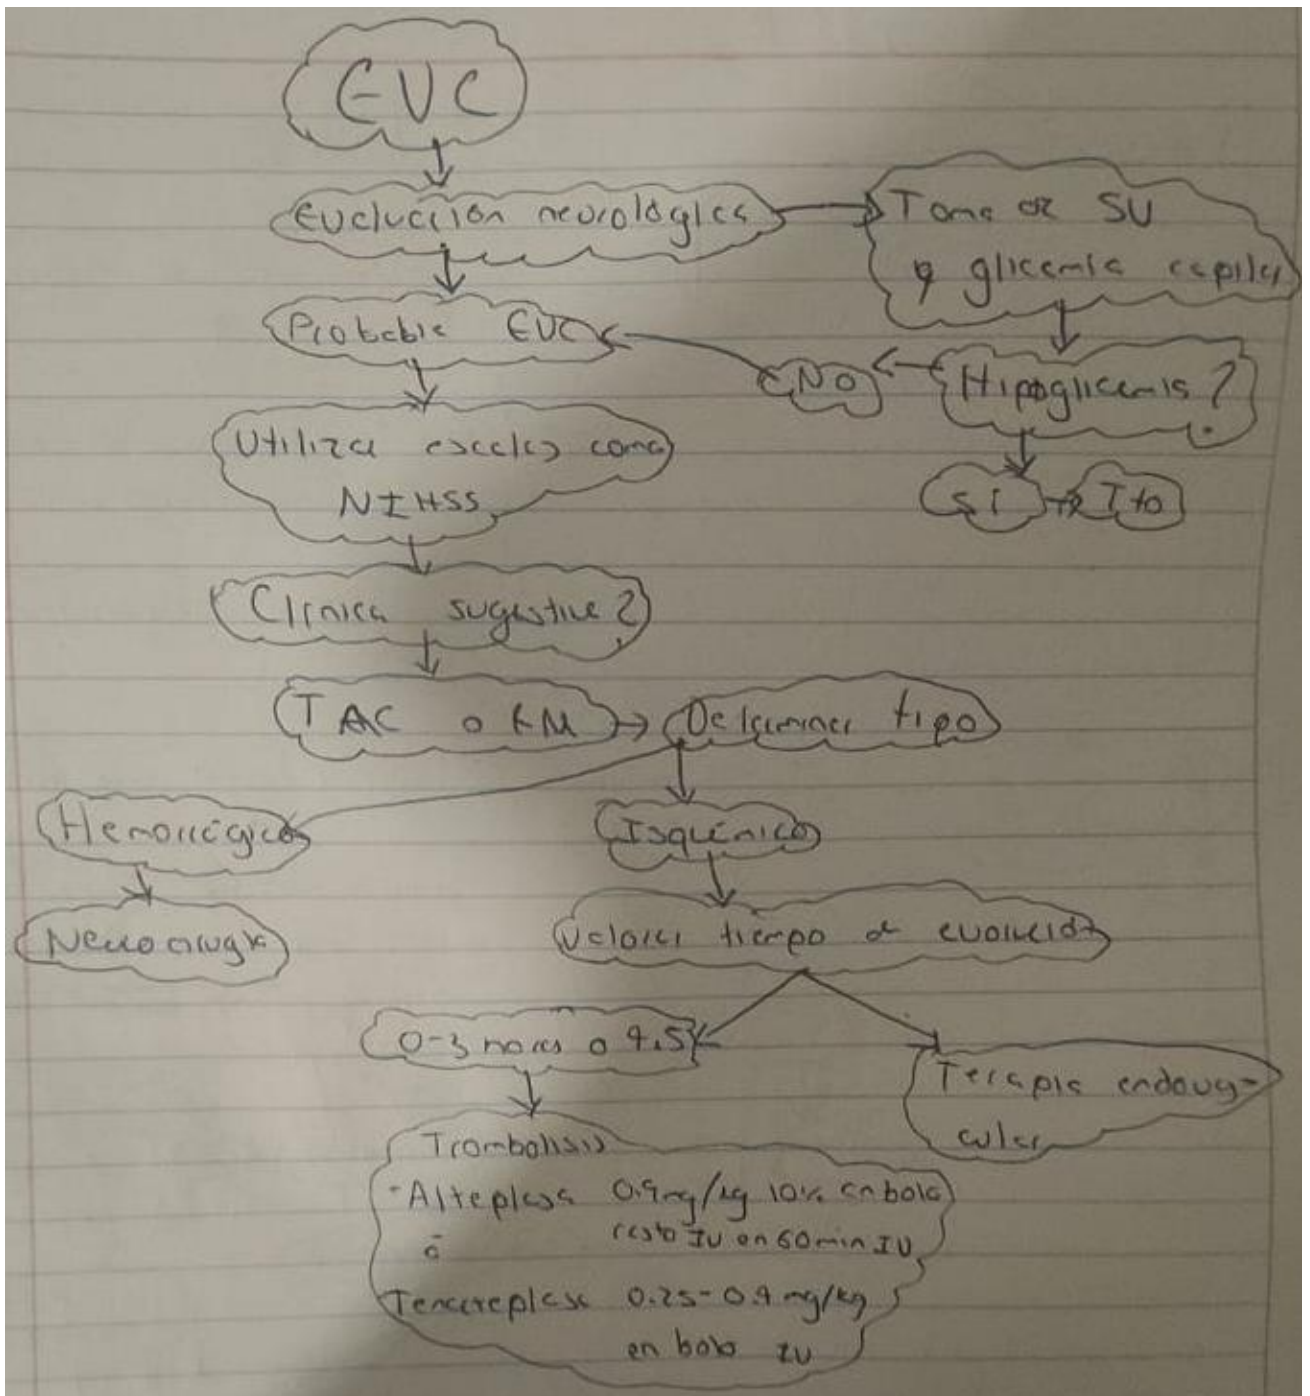 EVC
Evaluación neurológica
Toma de SV
y glicemia capilar
Probable EVC
NO
Hipoglicemia?
Utilizar escalas como
NIHSS
SI
Tto
Clínica sugestiva?
TAC o RM
Determinar tipo
Hemorrágico
Isquémico
Neurocirugía
Valorar tiempo de evolución
0-3 horas o 4.5
Terapia endova-
cular
Trombolisis
-Alteplasa 0.9mg/kg 10% en bolo
resto IV en 60min IV
ó
Tenecteplasa 0.25-0.4 mg/kg
en bolo IV